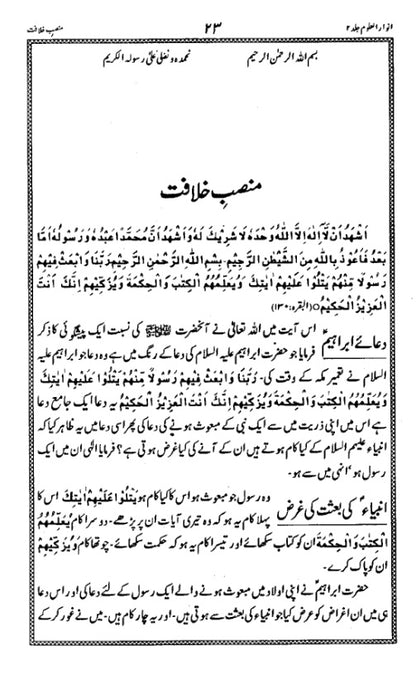 انوار العلوم جلد ۲
۲۳
منصب خلافت
بسم اللہ الرحمٰن الرحیم
نحمدہ و نصلی علیٰ رسولہ الکریم
منصبِ خلافت
اَشْهَدُ اَنْ لَّا اِلٰهَ اِلَّا اللّٰهُ وَحْدَهٗ لَا شَرِيْكَ لَهٗ وَ اَشْهَدُ اَنَّ مُحَمَّدًا عَبْدُهٗ وَ رَسُوْلُهٗ اَمَّا
بَعْدُ فَاَعُوْذُ بِاللّٰهِ مِنَ الشَّيْطٰنِ الرَّجِيْمِ۔ بِسْمِ اللّٰهِ الرَّحْمٰنِ الرَّحِيْمِ رَبَّنَا وَ ابْعَثْ فِيْهِمْ
رَسُوْلًا مِّنْهُمْ يَتْلُوْا عَلَيْهِمْ اٰيٰتِكَ وَ يُعَلِّمُهُمُ الْكِتٰبَ وَ الْحِكْمَةَ وَ يُزَكِّيْهِمْ اِنَّكَ اَنْتَ
الْعَزِيْزُ الْحَكِيْمُ ○ (البقرہ: ۱۳۰)
دعائے ابراہیمؑ اس آیت میں اللہ تعالیٰ نے آنحضرت ﷺ کی نسبت ایک پیشگوئی کا ذکر
فرمایا جو حضرت ابراہیم علیہ السلام کی دعا کے رنگ میں ہے وہ دعا جو ابراہیم علیہ
السلام نے تعمیر مکہ کے وقت کی۔ رَبَّنَا وَ ابْعَثْ فِيْهِمْ رَسُوْلًا مِّنْهُمْ يَتْلُوْا عَلَيْهِمْ اٰيٰتِكَ
وَ يُعَلِّمُهُمُ الْكِتٰبَ وَ الْحِكْمَةَ وَ يُزَكِّيْهِمْ اِنَّكَ اَنْتَ الْعَزِيْزُ الْحَكِيْمُ یہ دعا ایک جامع دعا
ہے اس میں اپنی ذریت میں سے ایک نبی کے مبعوث ہونے کی دعا کی پھر اسی دعا میں یہ ظاہر کیا کہ
انبیاء علیہم السلام کے کیا کام ہوتے ہیں ان کے آنے کی کیا غرض ہوتی ہے؟ فرمایا الٰہی ان میں ایک
رسول ہو' انہی میں سے ہو۔
انبیاءؑ کی بعثت کی غرض وہ رسول جو مبعوث ہو اس کا کیا کام ہو يَتْلُوْا عَلَيْهِمْ اٰيٰتِكَ اس کا
پہلا کام یہ ہو کہ وہ تیری آیات ان پر پڑھے۔ دوسرا کام يُعَلِّمُهُمُ
الْكِتٰبَ وَ الْحِكْمَةَ ان کو کتاب سکھائے اور تیسرا کام یہ ہو کہ حکمت سکھائے۔ چوتھا کام وَ يُزَكِّيْهِمْ
ان کو پاک کرے۔
حضرت ابراہیمؑ نے اپنی اولاد میں مبعوث ہونے والے ایک رسول کے لئے دعا کی اور اس دعا
ہی میں ان اغراض کو عرض کیا جو انبیاء کی بعثت سے ہوتی ہیں۔ اور یہ چار کام ہیں۔ میں نے غور کر کے